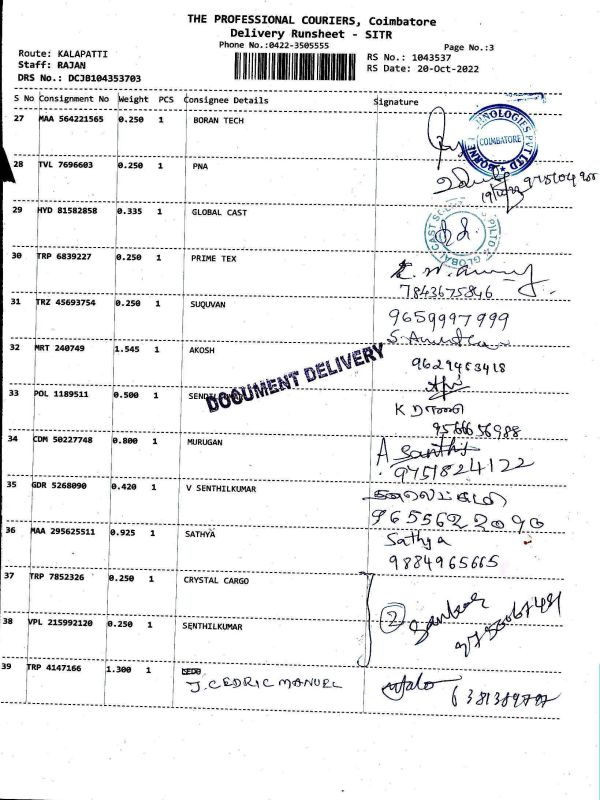 THE PROFESSIONAL COURIERS, Coimbatore
Delivery Runsheet - SITR
Phone No.:0422-3505555
Page No.:3
Route: KALAPATTI
Staff: RAJAN
DRS No.: DCJB104353703
RS No.: 1043537
RS Date: 20-Oct-2022
S No Consignment No Weight PCS Consignee Details Signature
27 MAA 564221565 0.250 1 BORAN TECH
COIMBATORE
28 TVL 7696603 0.250 1 PNA
29 HYD 81582858 0.335 1 GLOBAL CAST
30 TRP 6839227 0.250 1 PRIME TEX
7843675846
31 TRZ 45693754 0.250 1 SUQUVAN
9659997999
32 MRT 240749 1.545 1 AKOSH
9629453418
DOCUMENT DELIVERY
33 POL 1189511 0.500 1
9566656988
34 CDM 50227748 0.800 1 MURUGAN
A Santhi
9751824122
35 GDR 5268090 0.420 1 V SENTHILKUMAR
36 MAA 295625511 0.925 1 SATHYA
Sathya
9884965665
37 TRP 7852326 0.250 1 CRYSTAL CARGO
2
38 VPL 215992120 0.250 1 SENTHILKUMAR
39 TRP 4147166 1.300 1
J. CEDRIC MANUEL